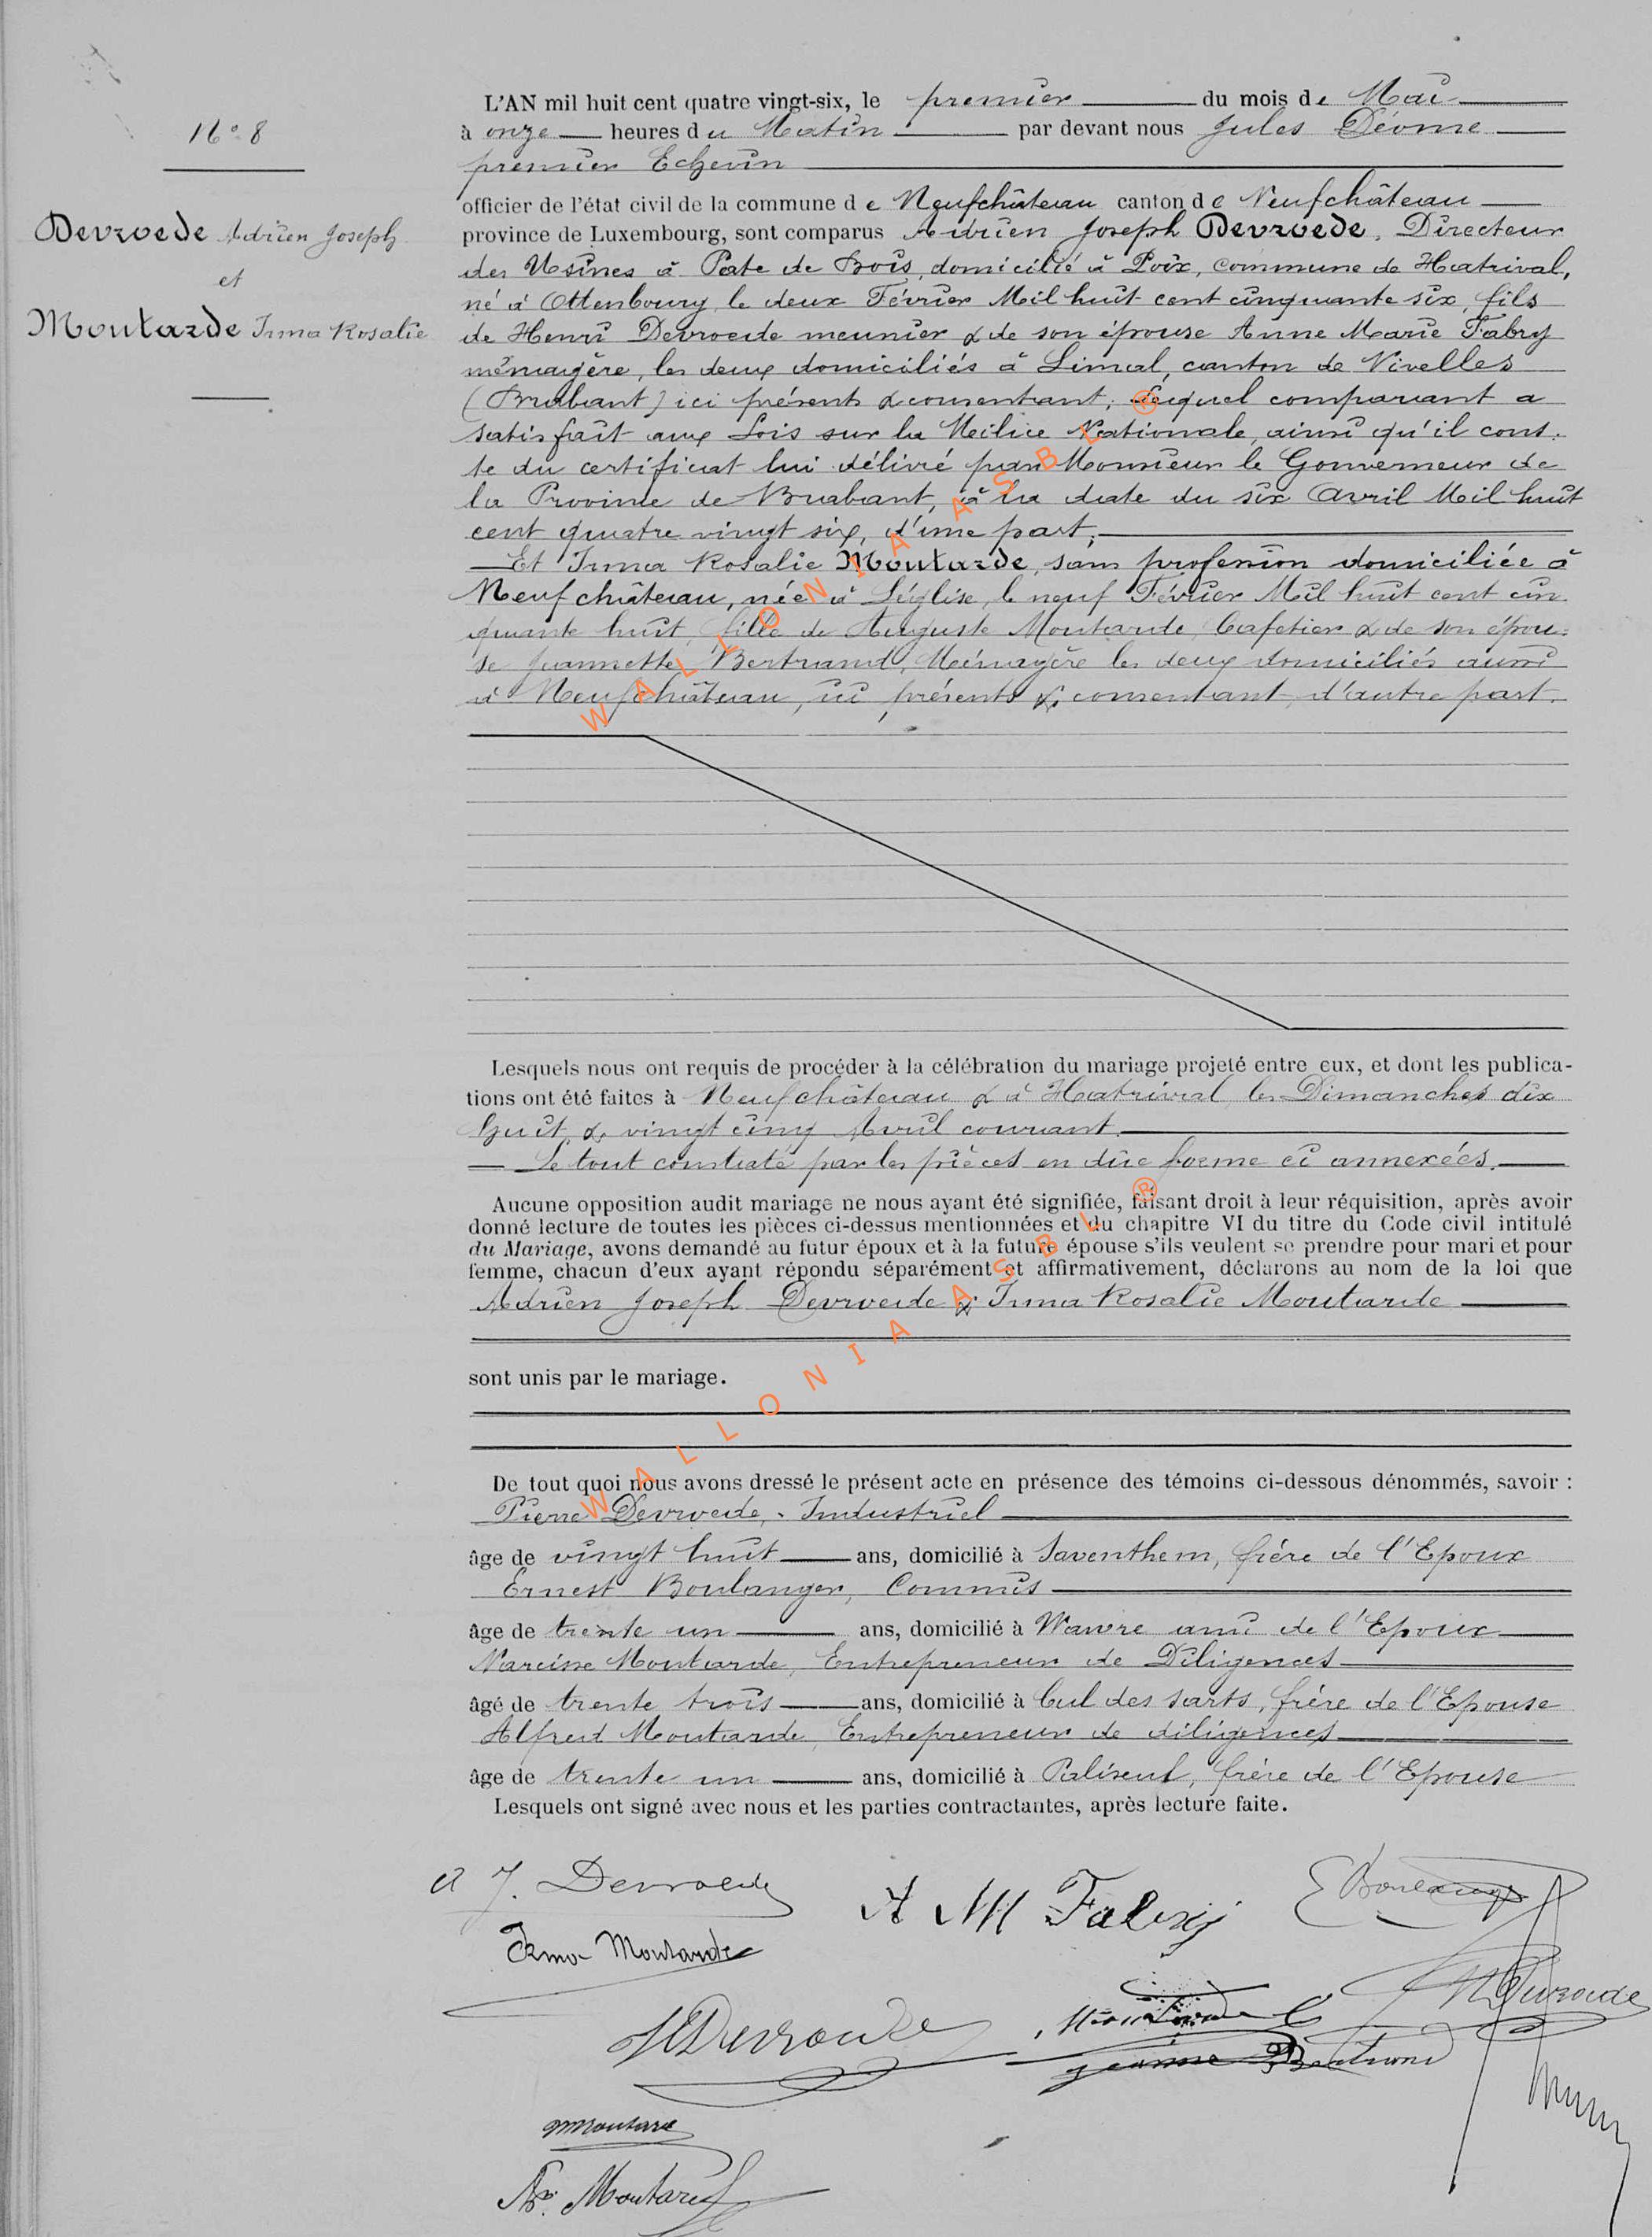 N° 8
Devroede Adrien Joseph
et
Moutarde Irma Rosalie
L'AN mil huit cent quatre vingt-six, le premier du mois de Mai
à onze heures du Matin par devant nous Jules Déome
premier Echevin
officier de l'état civil de la commune de Neufchâteau canton de Neufchâteau
province de Luxembourg, sont comparus Adrien Joseph Devroede, Directeur
des Usines à Pate de Bois, domicilié à Poix, commune de Hatrival,
né à Ottenbourg le deux Février Mil huit cent cinquante six, fils
de Henri Devroede meunier & de son épouse Anne Marie Fabry
ménagère, les deux domiciliés à Limal, canton de Nivelles
(Brabant) ici présents & consentant; Lequel comparant a
satisfait aux Lois sur la Meilice Nationale, ainsi qu'il cons-
te du certificat lui délivré par Monsieur le Gouverneur de
la Province de Brabant, à la date du six Avril Mil huit
cent quatre vingt six, d'une part;
Et Irma Rosalie Moutarde, sans profession domiciliée à
Neufchâteau, née à Léglise, le neuf Février Mil huit cent cin
quante huit, fille de Auguste Moutarde, Cafetier & de son épou-
se Jeannette Bertrand, Ménagère les deux domiciliés aussi
à Neufchâteau, ici présents & consentant, d'autre part.
Lesquels nous ont requis de procéder à la célébration du mariage projeté entre eux, et dont les publica-
tions ont été faites à Neufchâteau & à Hatrival, les Dimanches dix
huit & vingt cinq Avril courant.
Le tout constaté par les pièces en dûe forme ci annexées.
Aucune opposition audit mariage ne nous ayant été signifiée, faisant droit à leur réquisition, après avoir
donné lecture de toutes les pièces ci-dessus mentionnées et du chapitre VI du titre du Code civil intitulé
du Mariage, avons demandé au futur époux et à la future épouse s'ils veulent se prendre pour mari et pour
femme, chacun d'eux ayant répondu séparément et affirmativement, déclarons au nom de la loi que
Adrien Joseph Devroede & Irma Rosalie Moutarde
sont unis par le mariage.
De tout quoi nous avons dressé le présent acte en présence des témoins ci-dessous dénommés, savoir :
Pierre Devroede, Industriel
âge de vingt huit ans, domicilié à Saventhem, frére de l'Epoux
Ernest Boulanger, Commis
âge de trente un ans, domicilié à Wavre ami de l'Epoux
Narcisse Moutarde, Entrepreneur de Diligences
âgé de trente trois ans, domicilié à Cul des Sarts, frére de l'Epouse
Alfred Moutarde, Entrepreneur de diligences
âge de trente un ans, domicilié à Paliseul, frére de l'Epouse
Lesquels ont signé avec nous et les parties contractantes, après lecture faite.
A J. Devroede
A M Fabry
E Boulanger
Irma Moutarde
Devroede
H Devroede
Moutarde
Jeanne Bertrand
Moutarde
N. Moutarde
WALLONIA ASBL ®
WALLONIA ASBL ®